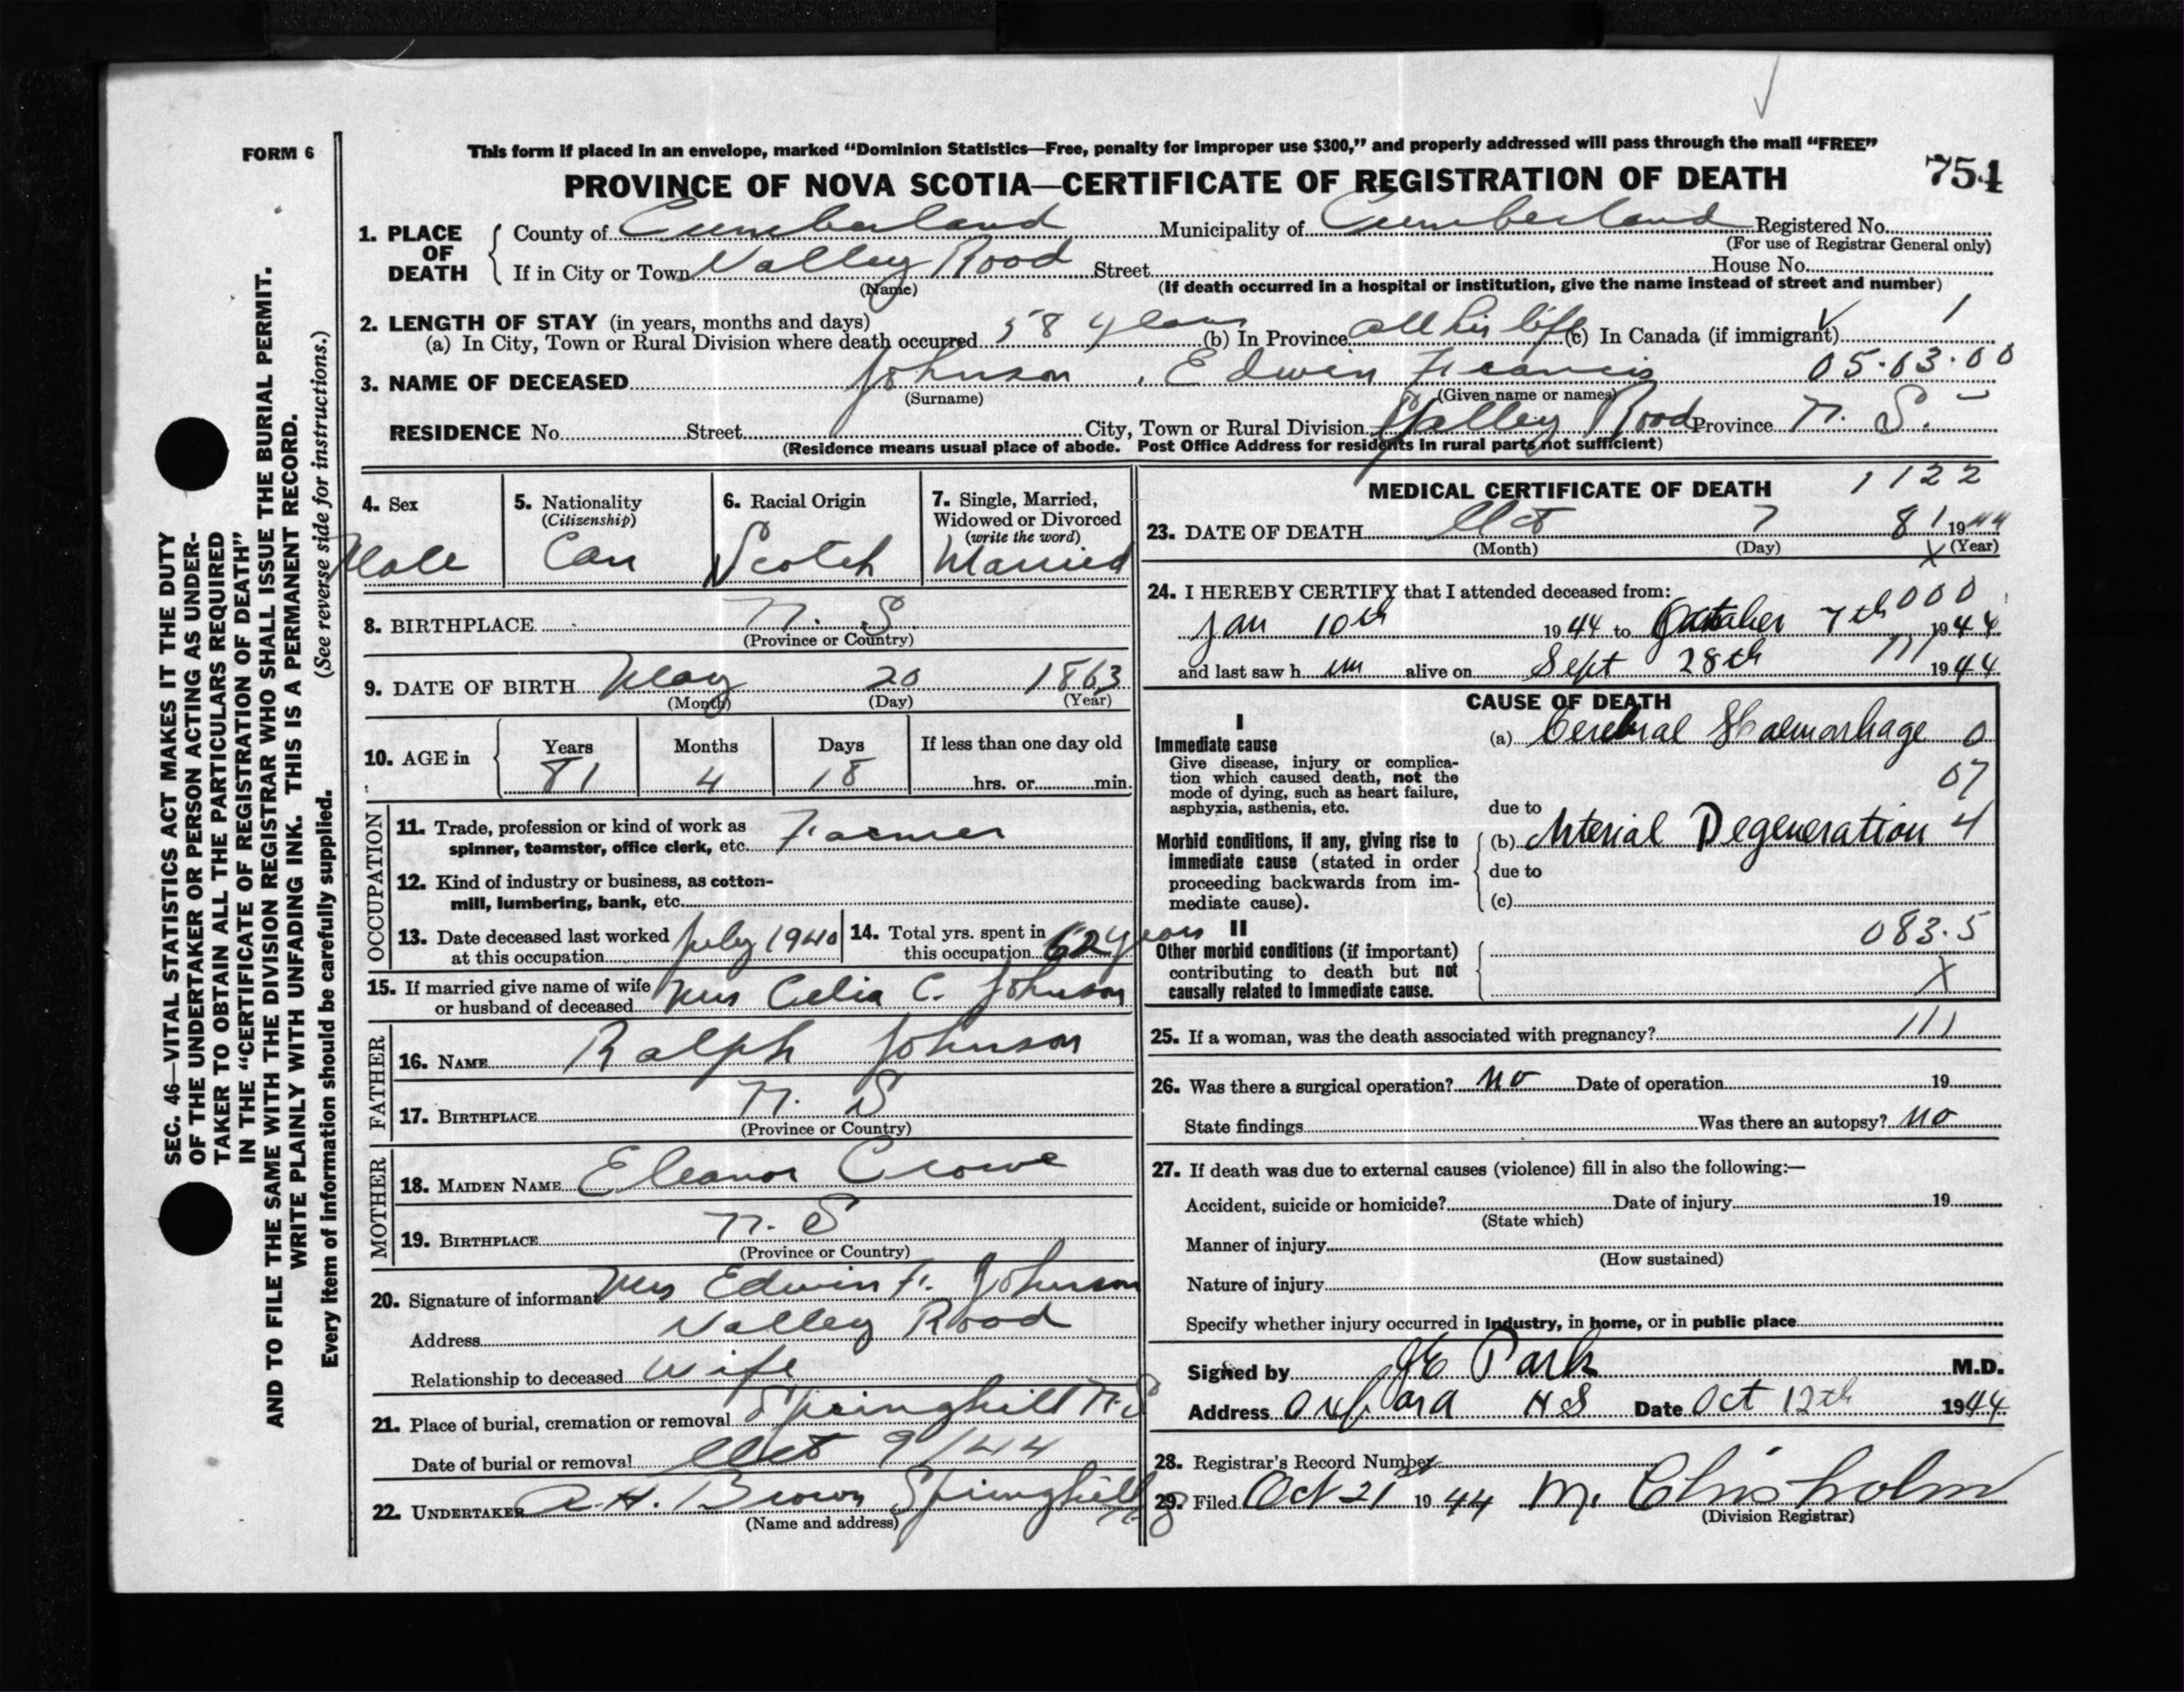 FORM 6
This form if placed in an envelope, marked “Dominion Statistics—Free, penalty for improper use $300,” and properly addressed will pass through the mail “FREE”
PROVINCE OF NOVA SCOTIA—CERTIFICATE OF REGISTRATION OF DEATH
754
1. PLACE OF DEATH
County of Cumberland Municipality of Cumberland Registered No.
(For use of Registrar General only)
If in City or Town Valley Road Street House No.
(Name) (If death occurred in a hospital or institution, give the name instead of street and number)
2. LENGTH OF STAY (in years, months and days)
(a) In City, Town or Rural Division where death occurred 58 years (b) In Province all his life (c) In Canada (if immigrant) 1
3. NAME OF DECEASED Johnson, Edwin Francis 05·03·00
(Surname) (Given name or names)
RESIDENCE No. Street City, Town or Rural Division Valley Road Province N. S.
(Residence means usual place of abode. Post Office Address for residents in rural parts not sufficient)
4. Sex
Male
5. Nationality
(Citizenship)
Can
6. Racial Origin
Scotch
7. Single, Married,
Widowed or Divorced
(write the word)
Married
8. BIRTHPLACE N. S.
(Province or Country)
9. DATE OF BIRTH May 20 1863
(Month) (Day) (Year)
10. AGE in
Years Months Days If less than one day old
81 4 18 hrs. or min.
OCCUPATION
11. Trade, profession or kind of work as
spinner, teamster, office clerk, etc. Farmer
12. Kind of industry or business, as cotton-
mill, lumbering, bank, etc.
13. Date deceased last worked
at this occupation July 1940
14. Total yrs. spent in
this occupation 62 years
15. If married give name of wife
or husband of deceased Mrs Celia C. Johnson
FATHER
16. NAME Ralph Johnson
17. BIRTHPLACE N. S
(Province or Country)
MOTHER
18. MAIDEN NAME Eleanor Crowe
19. BIRTHPLACE N. S
(Province or Country)
20. Signature of informant Mrs Edwin F. Johnson
Address Valley Road
Relationship to deceased Wife
21. Place of burial, cremation or removal Springhill N.S
Date of burial or removal Oct 9/44
22. UNDERTAKER A. H. Brown Springhill N. S
(Name and address)
MEDICAL CERTIFICATE OF DEATH 1122
23. DATE OF DEATH Oct 7 81 1944
(Month) (Day) (Year)
X
24. I HEREBY CERTIFY that I attended deceased from: 000
Jan 10th 1944 to October 7th 1944
and last saw h im alive on Sept 28th 111 1944
CAUSE OF DEATH
I
Immediate cause
Give disease, injury or complica-
tion which caused death, not the
mode of dying, such as heart failure,
asphyxia, asthenia, etc.
(a) Cerebral Haemorhage 0
07
due to
Morbid conditions, if any, giving rise to
immediate cause (stated in order
proceeding backwards from im-
mediate cause).
(b) Arterial Degeneration 4
due to
(c)
II
Other morbid conditions (if important)
contributing to death but not
causally related to immediate cause.
083.5
X
25. If a woman, was the death associated with pregnancy? 111
26. Was there a surgical operation? No Date of operation 19
State findings Was there an autopsy? No
27. If death was due to external causes (violence) fill in also the following:—
Accident, suicide or homicide? Date of injury 19
(State which)
Manner of injury
(How sustained)
Nature of injury
Specify whether injury occurred in industry, in home, or in public place
Signed by JE Park M.D.
Address Oxford NS Date Oct 12th 1944
28. Registrar's Record Number
29. Filed Oct 21st 1944 M. Chisholm
(Division Registrar)
SEC. 46—VITAL STATISTICS ACT MAKES IT THE DUTY
OF THE UNDERTAKER OR PERSON ACTING AS UNDER-
TAKER TO OBTAIN ALL THE PARTICULARS REQUIRED
IN THE “CERTIFICATE OF REGISTRATION OF DEATH”
AND TO FILE THE SAME WITH THE DIVISION REGISTRAR WHO SHALL ISSUE THE BURIAL PERMIT.
WRITE PLAINLY WITH UNFADING INK. THIS IS A PERMANENT RECORD.
Every item of information should be carefully supplied. (See reverse side for instructions.)